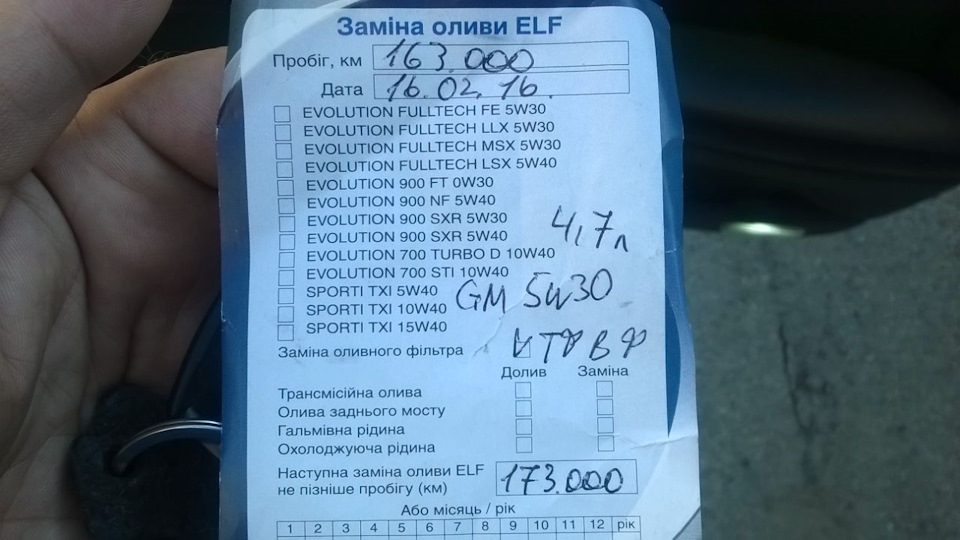 Заміна оливи ELF
Пробіг, км 163.000
Дата 16.02.16.
EVOLUTION FULLTECH FE 5W30
EVOLUTION FULLTECH LLX 5W30
EVOLUTION FULLTECH MSX 5W30
EVOLUTION FULLTECH LSX 5W40
EVOLUTION 900 FT 0W30
EVOLUTION 900 NF 5W40
EVOLUTION 900 SXR 5W30
EVOLUTION 900 SXR 5W40
4,7л
EVOLUTION 700 TURBO D 10W40
EVOLUTION 700 STI 10W40
SPORTI TXI 5W40
GM 5W30
SPORTI TXI 10W40
SPORTI TXI 15W40
Заміна оливного фільтра ТФ ВФ
Долив Заміна
Трансмісійна олива
Олива заднього мосту
Гальмівна рідина
Охолоджуюча рідина
Наступна заміна оливи ELF
не пізніше пробігу (км) 173.000
Або місяць / рік
1 2 3 4 5 6 7 8 9 10 11 12 рік